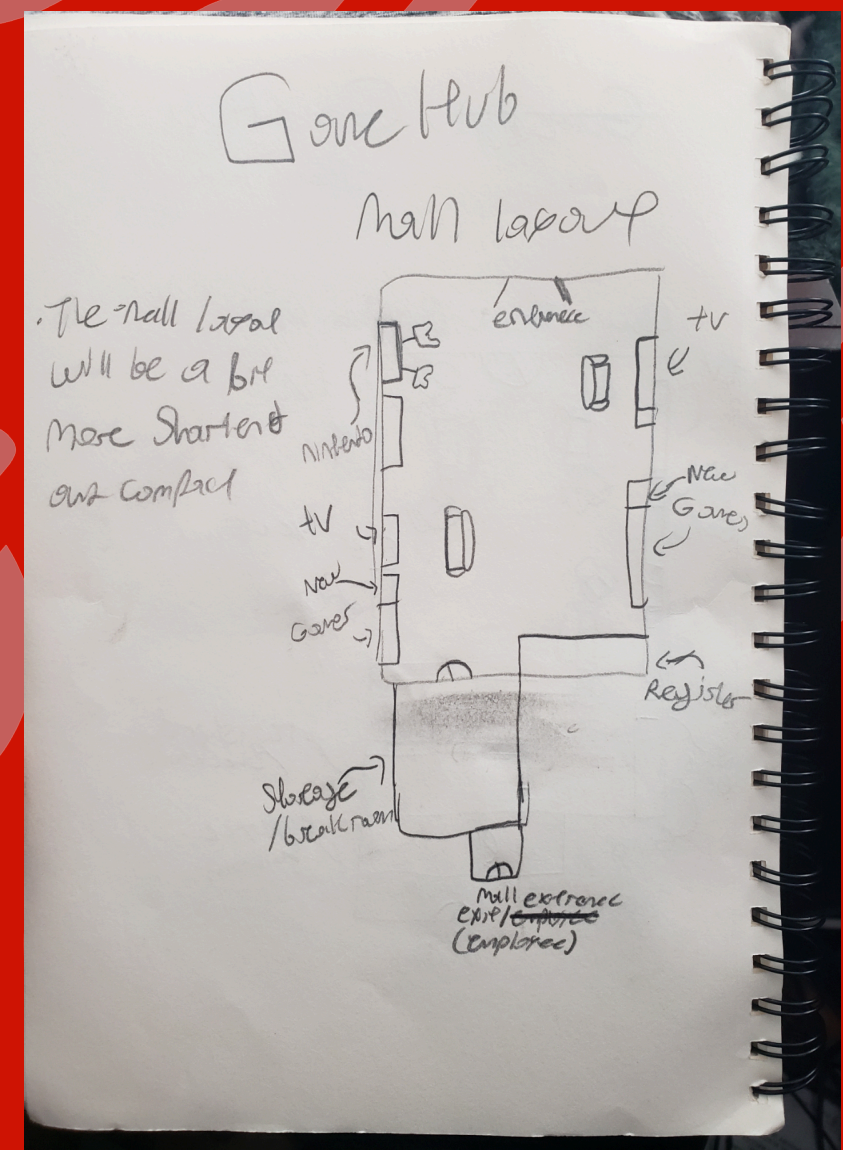 Game Hub
Mall layout
. The mall layout
will be a bit
more Shortened
and compact
entrance
tv
Nintendo
New
Games
tv
New
Games
Register
Storage
/breakroom
mall entrance
exit/
(employee)